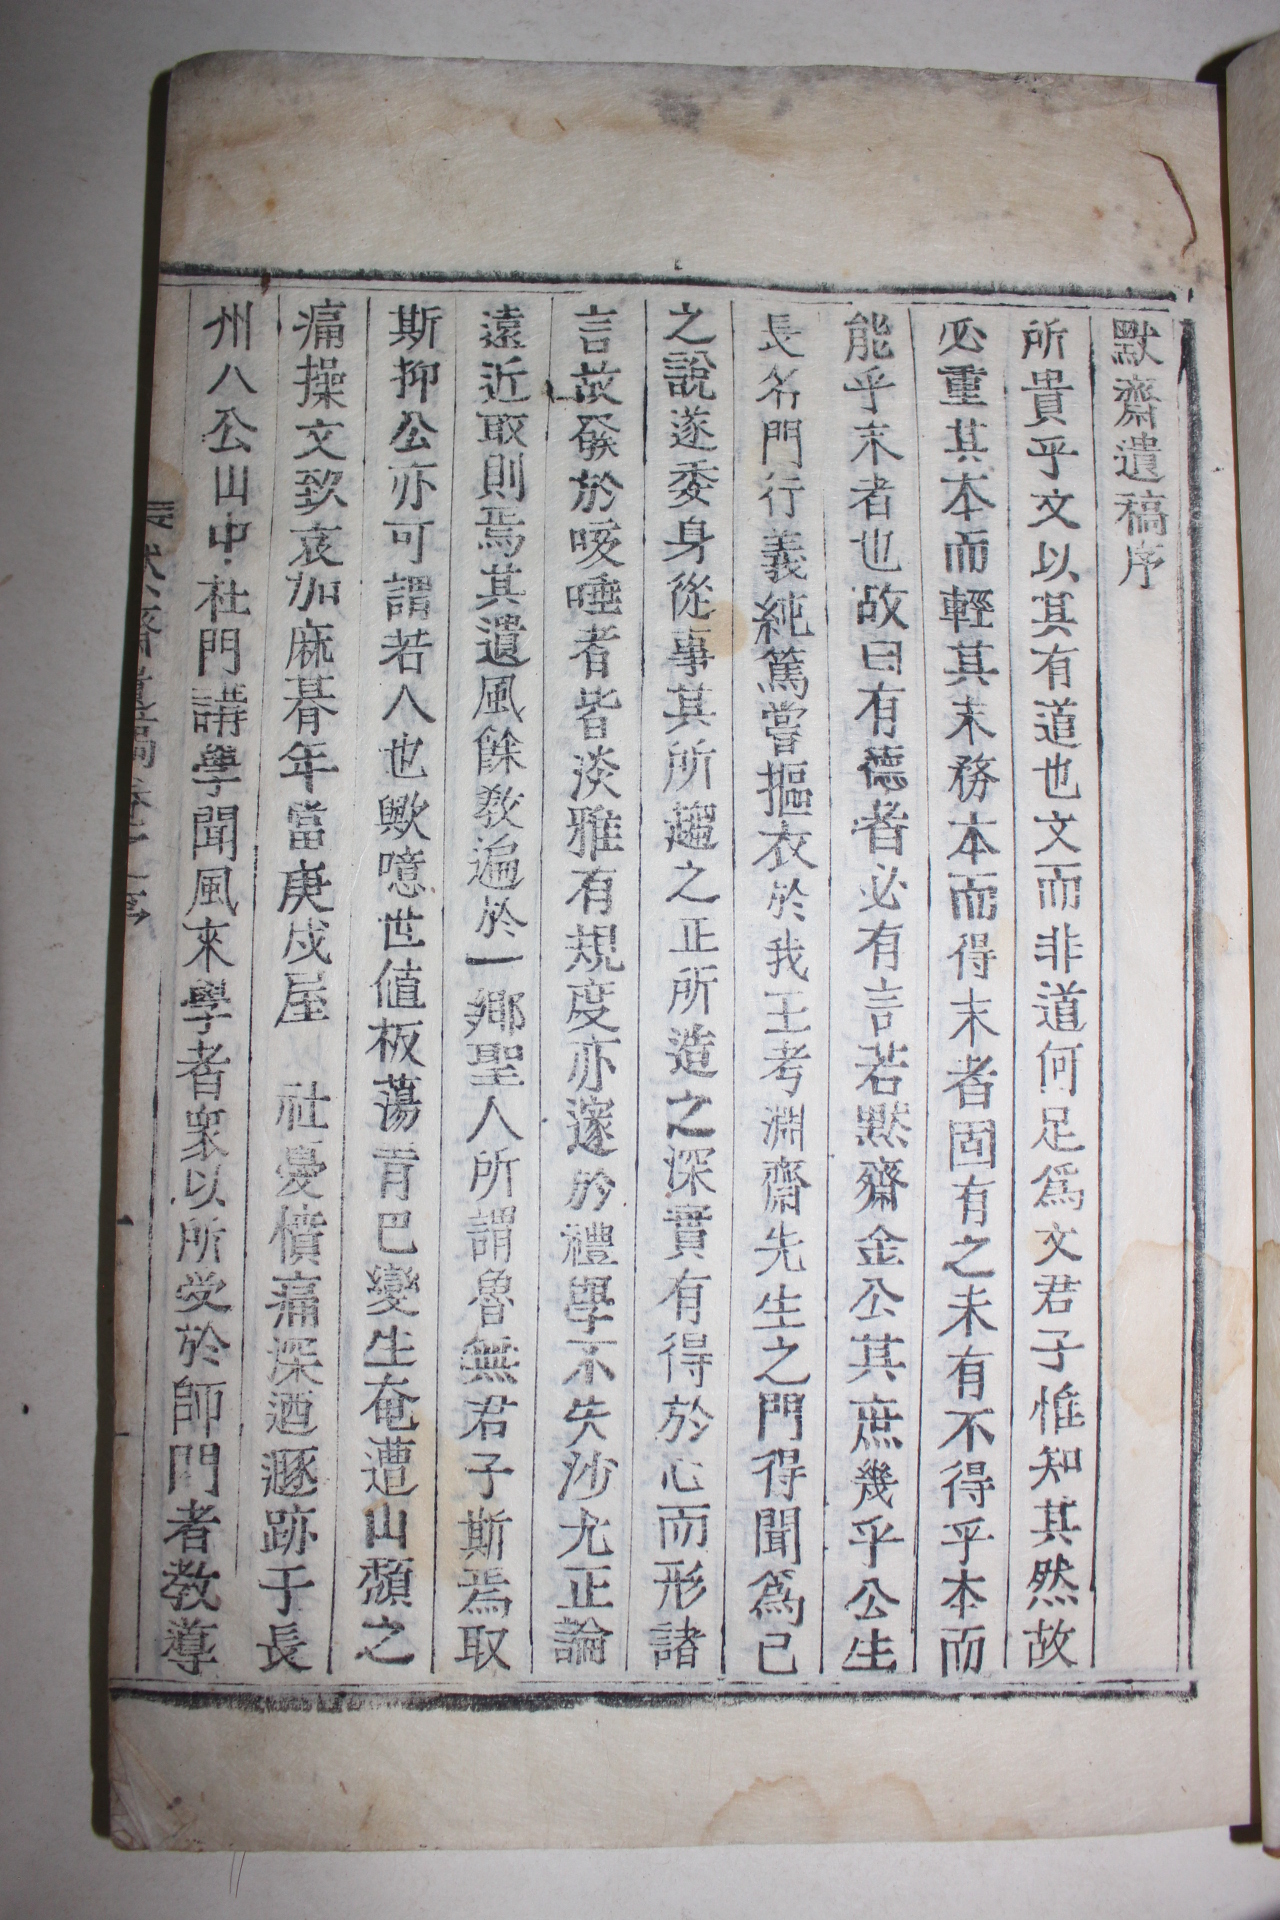 默齋遺稿序
所貴乎文以其有道也文而非道何足爲文君子惟知其然故
必重其本而輕其末務本而得末者固有之未有不得乎本而
能乎末者也故曰有德者必有言若默齋金公其庶幾乎公生
長名門行義純篤嘗摳衣於我王考淵齋先生之門得聞爲己
之說遂委身從事其所趨之正所造之深實有得於心而形諸
言故發於咳唾者皆淡雅有規度亦邃於禮學不失沙尤正論
遠近取則焉其遺風餘敎遍於一鄕聖人所謂魯無君子斯焉取
斯抑公亦可謂若人也歟噫世値板蕩青巴變生奄遭山頹之
痛操文致哀加麻朞年當庚戌屋 社憂憤痛深遁遯跡于長
州八公山中杜門講學聞風來學者衆以所受於師門者教導